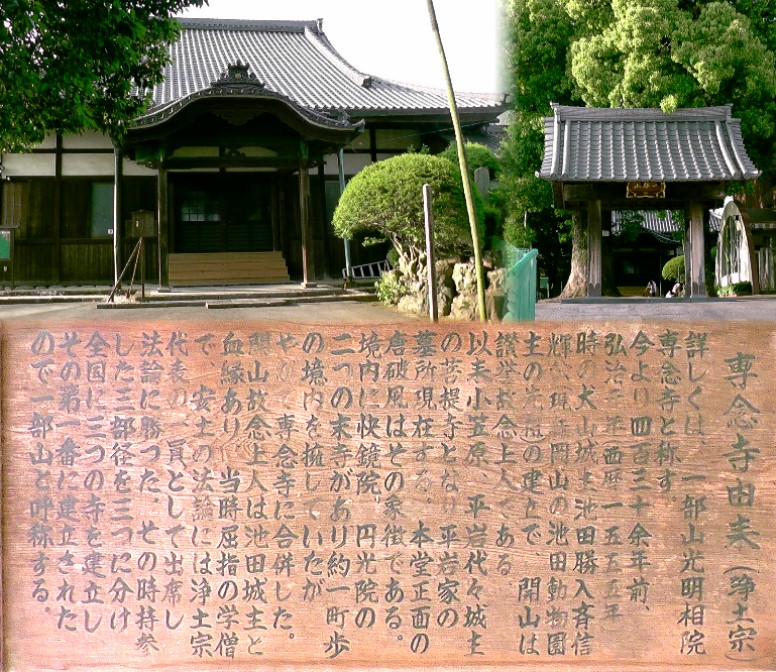 専念寺由来（浄土宗）
詳しくは、一部山光明相院
専念寺と称す。
今より四百三十余年前、
弘治二年（西暦一五五五年）
時の犬山城主池田勝入斉信
輝公現在岡山の池田動物園
主の先祖の建立で、開山は
讃誉故念上人である
以来小笠原、平岩代々城主
の菩提寺となり平岩家の
墓所現在する。本堂正面の
唐破風はその象徴である。
境内に快鏡院、円光院の
二つの末寺があり約一町歩
の境内を擁していたが
やがて専念寺に合併した。
開山故念上人は池田城主と
血縁あり、当時屈指の学僧
で、安土の法論には浄土宗
代表の一員として出席し
法論に勝った。その時持参
した三部径を三つに分け
全国に三つの寺を建立し
その第一番に建立された
ので一部山と呼称する。